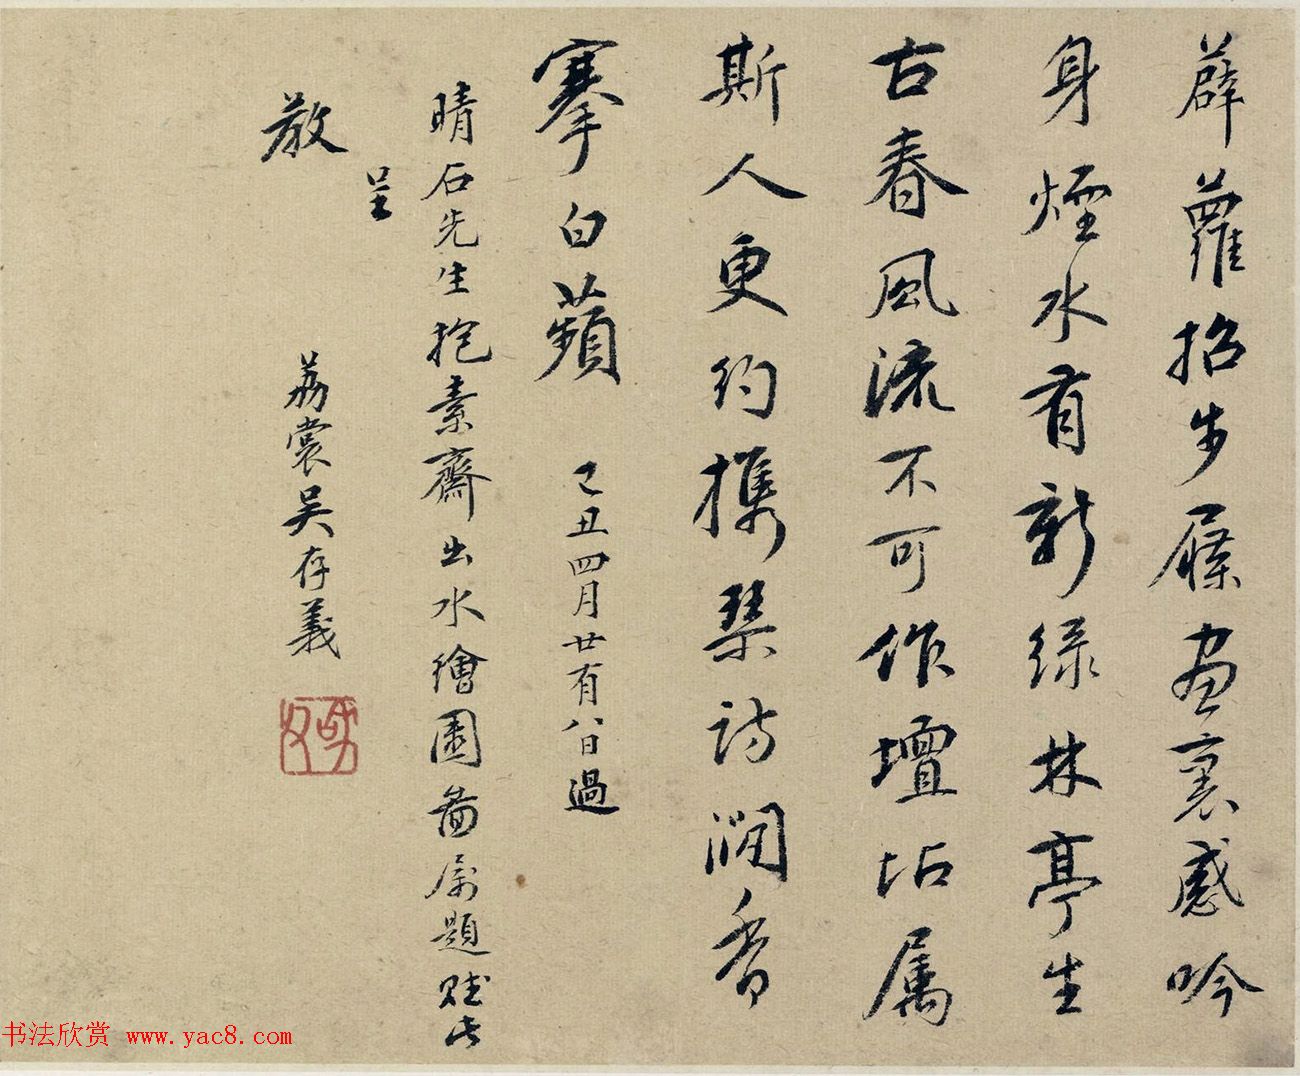 薜蘿招步屧畫裏感吟
身煙水有新綠林亭生
古春風流不可作壇坫屬
斯人更約攜琴訪澗香
搴白蘋 己丑四月廿有八日過
晴石先生抱素齋出水繪園圖屬題賦此
呈
教
荔裳吳存義
书法欣赏 www.yac8.com